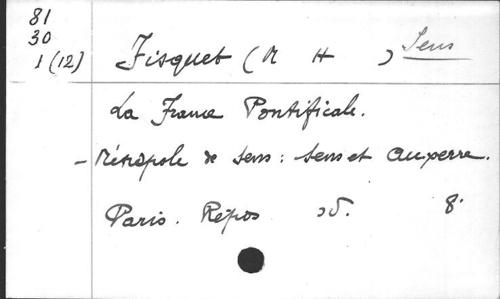 81
30
1 (12)
Fisquet (M H ) Sens
La France Pontificale.
- Métropole de Sens : Sens et Auxerre.
Paris. Repos 8°